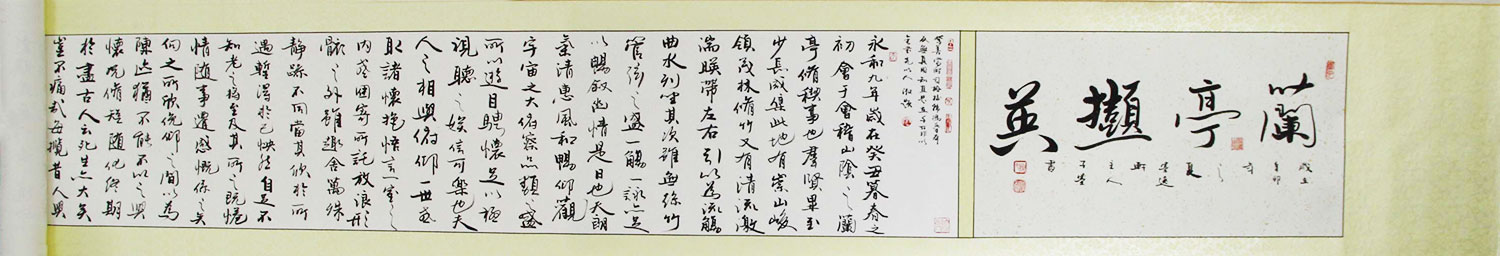 蘭亭擷英
永和九年歲在癸丑暮春之
初會于會稽山陰之蘭
亭脩稧事也群賢畢至
少長咸集此地有崇山峻
領茂林脩竹又有清流激
湍暎帶左右引以為流觴
曲水列坐其次雖無絲竹
管弦之盛一觴一詠亦足
以暢敘幽情是日也天朗
氣清惠風和暢仰觀
宇宙之大俯察品類之盛
所以遊目騁懷足以極
視聽之娛信可樂也夫
人之相與俯仰一世或
取諸懷抱悟言一室之
內或因寄所託放浪形
骸之外雖趣舍萬殊
靜躁不同當其欣於所
遇暫得於己怏然自足不
知老之將至及其所之既惓
情隨事遷感慨係之矣
向之所欣俛仰之間以為
陳迹猶不能不以之興
懷況脩短隨化終期
於盡古人云死生亦大矣
豈不痛哉每攬昔人興